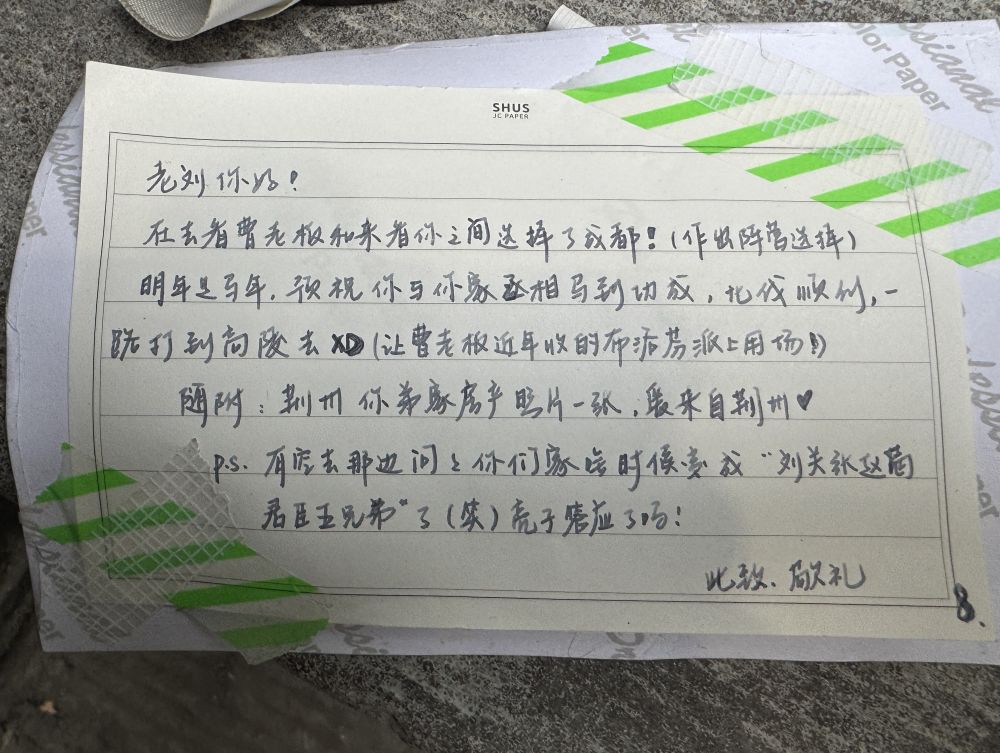 SHUS
JC PAPER
老刘你好！
在去看曹老板和来看你之间选择了成都！（作出阵营选择）
明年是马年，预祝你与你家丞相马到功成，北伐顺利，一
路打到高陵去 XD（让曹老板近年收的布洛芬派上用场！）
随附：荆州你弟家房产照片一张，爰来自荆州♥
p.s. 有空去那边问问你们家啥时候变成“刘关张赵葛
君臣五兄弟”了（笑）亮子答应了吗！
此致、敬礼
8.
essional
olor Paper
essional